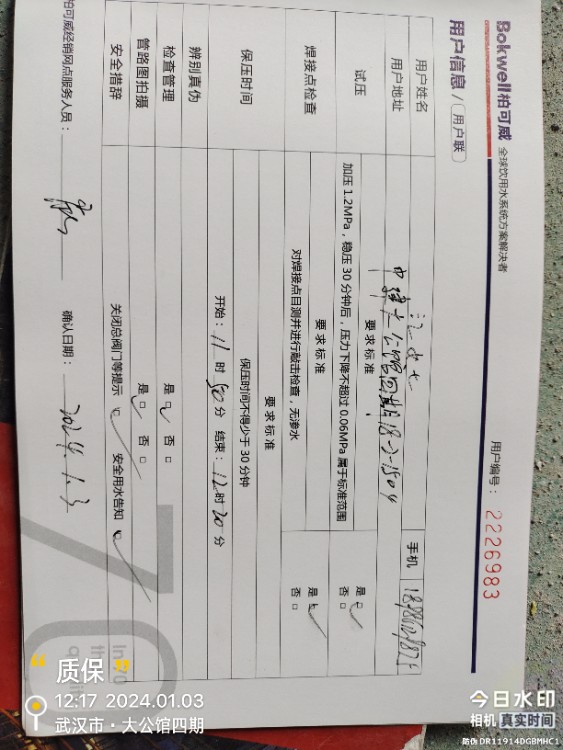 Bokwell柏可威 全球饮用水系统方案解决者
用户编号： 2226983
用户信息 / 用户联
用户姓名
手机
用户地址 18-2-1504
试压 要求标准
加压 1.2MPa，稳压 30 分钟后，压力下降不超过 0.06MPa 属于标准范围 是 否
焊接点检查 要求标准
对焊接点目测并进行敲击检查，无渗水 是 否
保压时间 要求标准
保压时间不得少于 30 分钟
开始：11 时 50 分 结束：12 时 20 分
辨别真伪
检查管理 是 否
管路图拍摄 是 否
安全措辞 关闭总阀门等提示 安全用水告知
柏可威经销网点服务人员： 确认日期：2024.1.3
质保
12:17 2024.01.03
武汉市·大公馆四期
今日水印
相机 真实时间
防伪 DR11914DGBMHC1